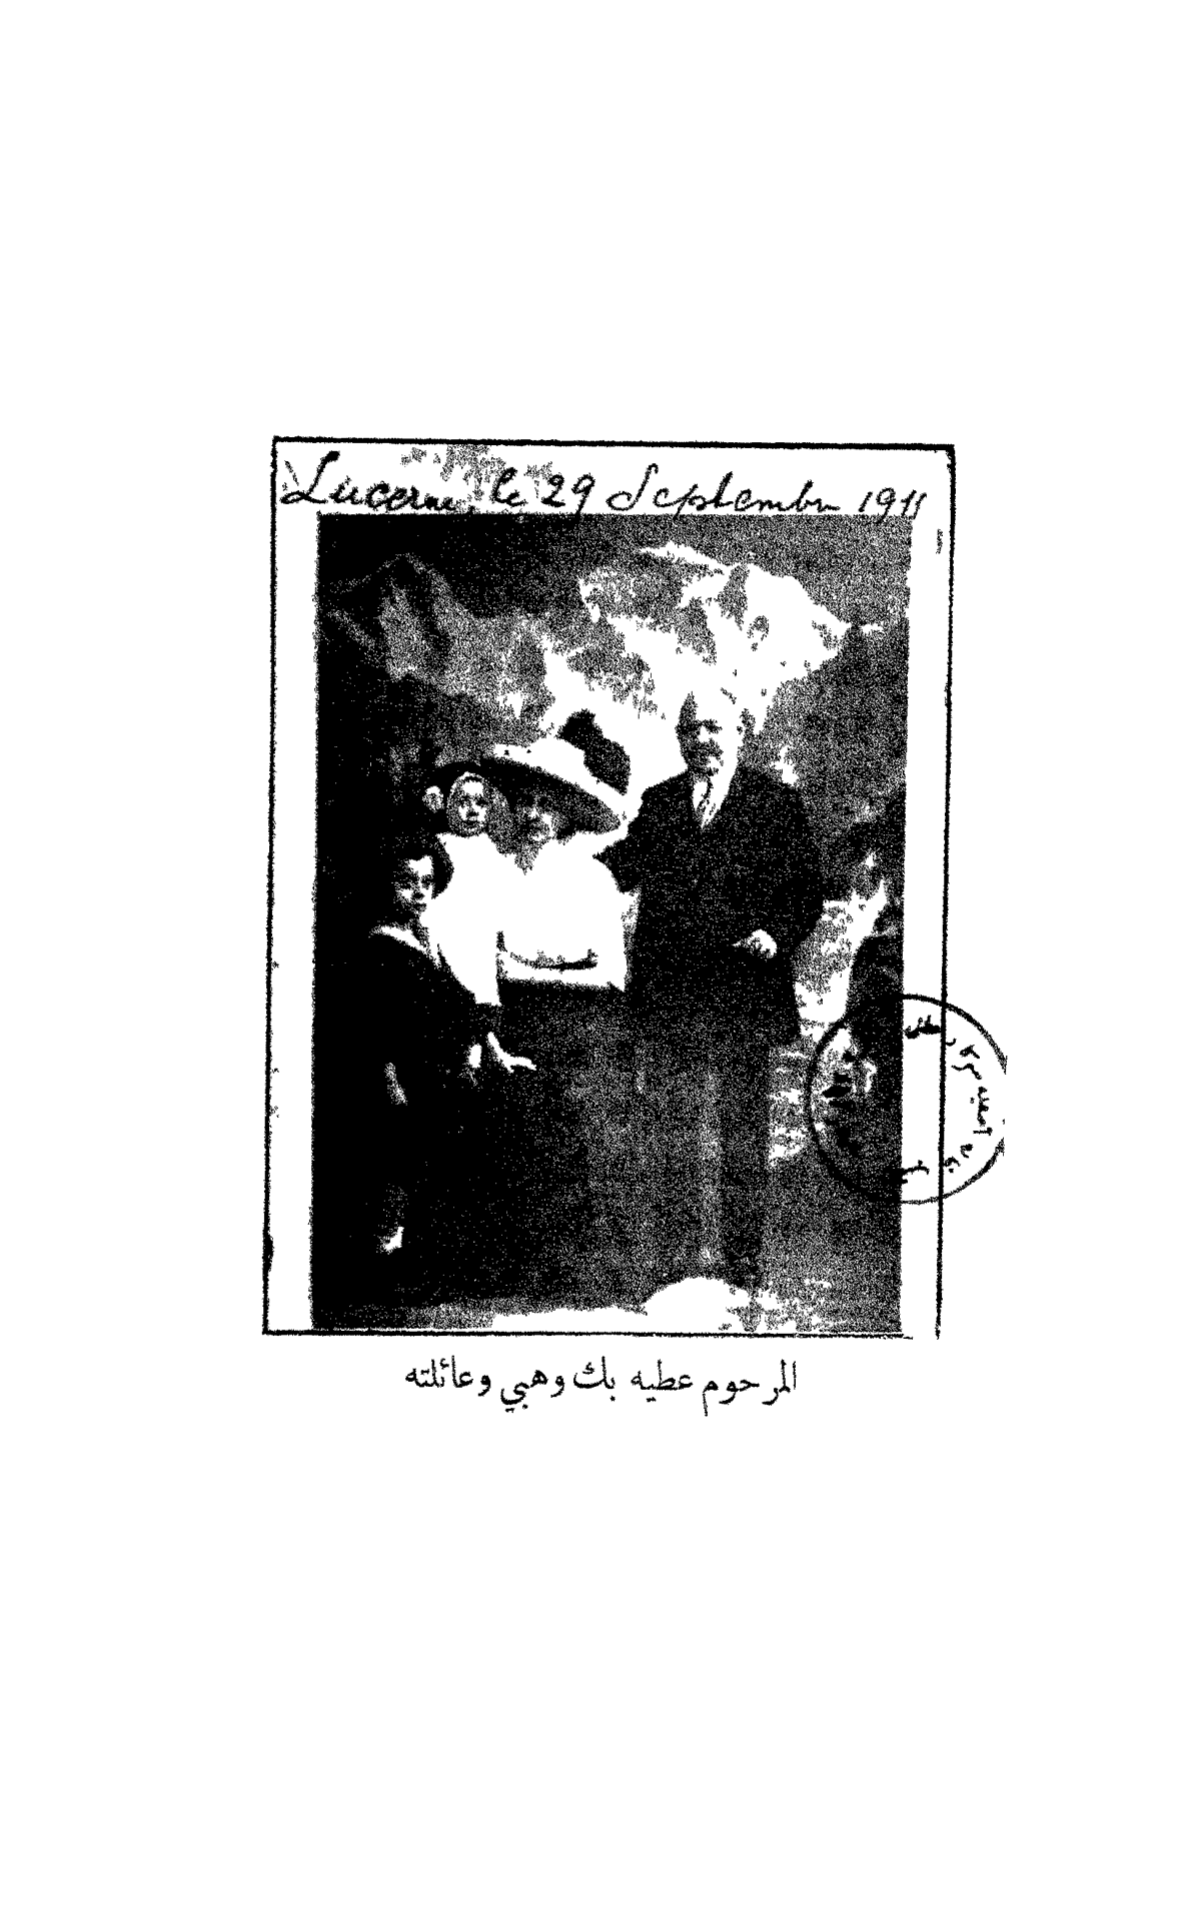 Lucerne, le 29 Septembre 1911
المرحوم عطيه بك وهبي وعائلته